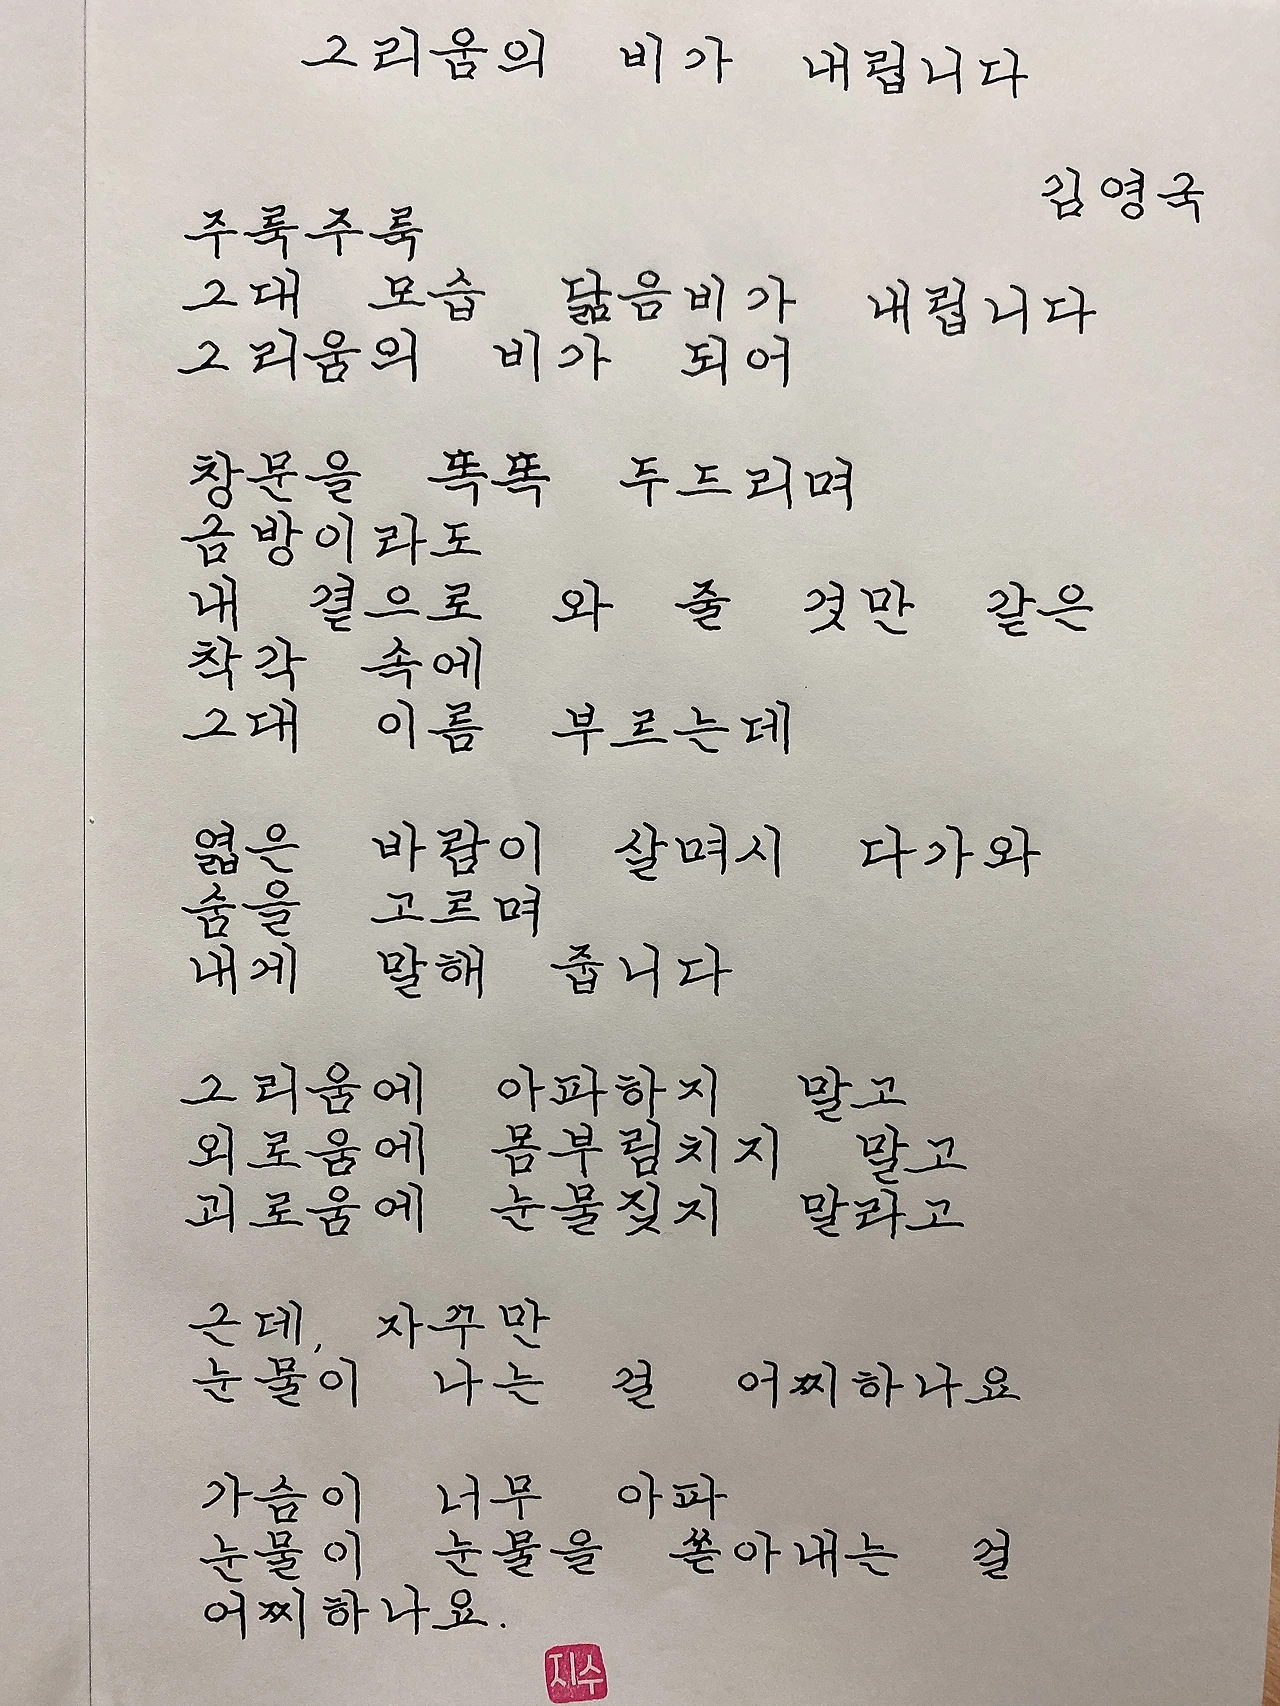 그리움의 비가 내립니다
김영국
주룩주룩
그대 모습 닮음비가 내립니다
그리움의 비가 되어
창문을 똑똑 두드리며
금방이라도
내 곁으로 와 줄 것만 같은
착각 속에
그대 이름 부르는데
엷은 바람이 살며시 다가와
숨을 고르며
내게 말해 줍니다
그리움에 아파하지 말고
외로움에 몸부림치지 말고
괴로움에 눈물짖지 말라고
근데, 자꾸만
눈물이 나는 걸 어찌하나요
가슴이 너무 아파
눈물이 눈물을 쏟아내는 걸
어찌하나요.
지수